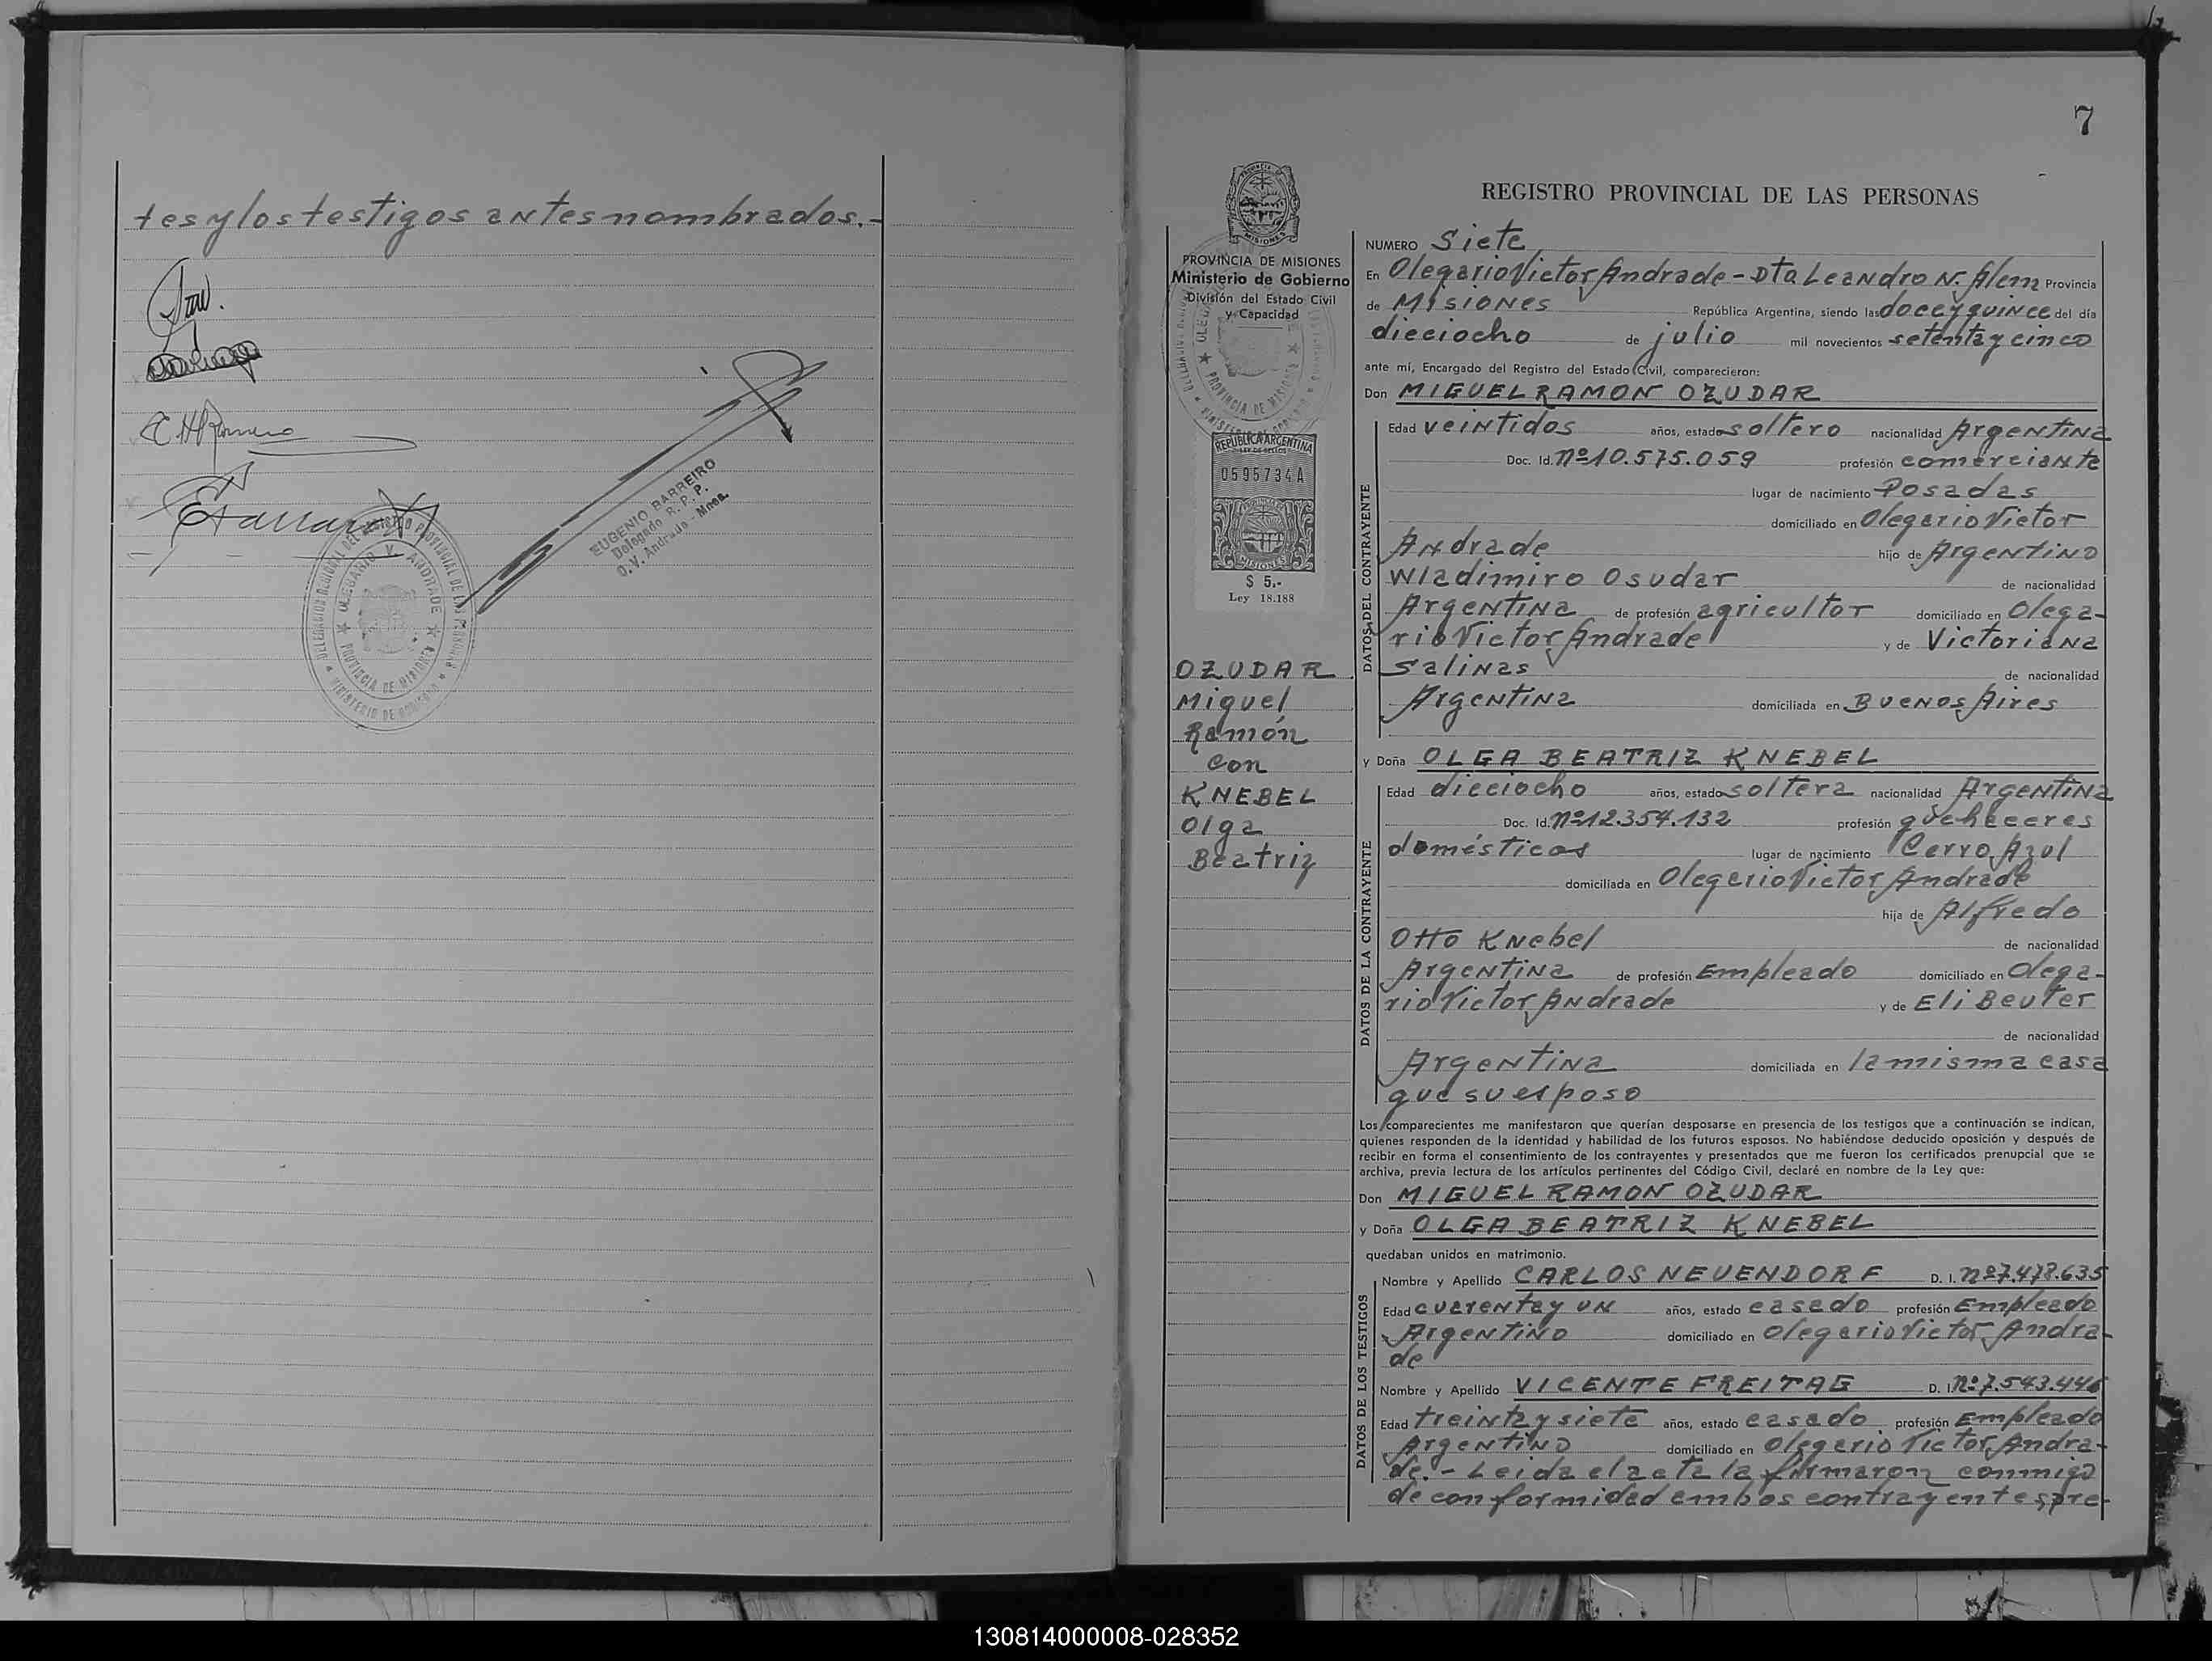 tes y los testigos antes nombrados.-
EUGENIO BARREIRO
Delegado R. P. P.
O. V. Andrade - Mnes.
DELEGACION REGIONAL DEL REGISTRO PROVINCIAL DE LAS PERSONAS
OLEGARIO V. ANDRADE
PROVINCIA DE MISIONES
MINISTERIO DE GOBIERNO
7
REGISTRO PROVINCIAL DE LAS PERSONAS
PROVINCIA DE MISIONES
Ministerio de Gobierno
División del Estado Civil
y Capacidad
REPUBLICA ARGENTINA
LEY DE SELLOS
0595734A
MISIONES
$ 5.-
Ley 18.188
OZUDAR
Miguel
Ramón
con
KNEBEL
Olga
Beatriz
NUMERO Siete
En Olegario Victor Andrade - Dto Leandro N. Alem Provincia
de Misiones República Argentina, siendo las doce y quince del día
dieciocho de julio mil novecientos setenta y cinco
ante mí, Encargado del Registro del Estado Civil, comparecieron:
Don MIGUEL RAMON OZUDAR
DATOS DEL CONTRAYENTE
Edad veintidos años, estado soltero nacionalidad Argentina
Doc. Id. nº 10.575.059 profesión comerciante
lugar de nacimiento Posadas
domiciliado en Olegario Victor
Andrade hijo de Argentino
Wladimiro Osudar de nacionalidad
Argentina de profesión agricultor domiciliado en Olega-
rio Victor Andrade y de Victoriana
Salinas de nacionalidad
Argentina domiciliada en Buenos Aires
y Doña OLGA BEATRIZ KNEBEL
DATOS DE LA CONTRAYENTE
Edad dieciocho años, estado soltera nacionalidad Argentina
Doc. Id. nº 12.354.132 profesión quehaceres
domésticos lugar de nacimiento Cerro Azul
domiciliada en Olegario Victor Andrade
hija de Alfredo
Otto Knebel de nacionalidad
Argentina de profesión Empleado domiciliado en Olega-
rio Victor Andrade y de Eli Beuter
de nacionalidad
Argentina domiciliada en la misma casa
que su esposo
Los comparecientes me manifestaron que querían desposarse en presencia de los testigos que a continuación se indican,
quienes responden de la identidad y habilidad de los futuros esposos. No habiéndose deducido oposición y después de
recibir en forma el consentimiento de los contrayentes y presentados que me fueron los certificados prenupcial que se
archiva, previa lectura de los artículos pertinentes del Código Civil, declaré en nombre de la Ley que:
Don MIGUEL RAMON OZUDAR
y Doña OLGA BEATRIZ KNEBEL
quedaban unidos en matrimonio.
DATOS DE LOS TESTIGOS
Nombre y Apellido CARLOS NEUENDORF D. I. nº 7.478.635
Edad cuarenta y un años, estado casado profesión Empleado
Argentino domiciliado en Olegario Victor Andra-
de
Nombre y Apellido VICENTE FREITAG D. I. nº 7.543.446
Edad treinta y siete años, estado casado profesión Empleado
Argentino domiciliado en Olegario Victor Andra-
de.- Leida el acta la firmaron conmigo
de conformidad ambos contrayentes pre-
130814000008-028352